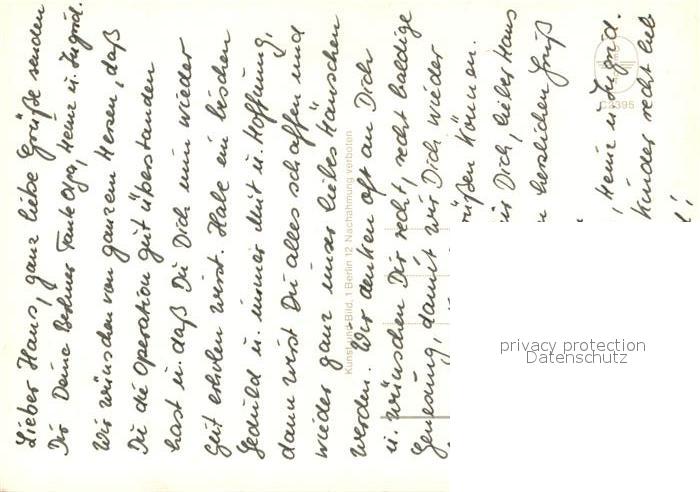 Lieber Hans, ganz liebe Grüße senden
Dir Deine Berliner Tante Olga, Heinz u. Ingrid.
Wir wünschen von ganzem Herzen, daß
Du die Operation gut überstanden
hast u. daß Du Dich nun wieder
gut erholen wirst. Habe ein bischen
Geduld u. immer Mut u. Hoffnung,
dann wirst Du alles schaffen und
wieder ganz unser liebes Hänschen
werden. Wir denken oft an Dich
u. wünschen Dir recht, recht baldige
Genesung, damit wir Dich wieder
rüßen können.
ir Dich, lieber Hans
herzlichen Gruß
, Heinz u. Ingrid.
Kinder recht lieb
!
Kunst und Bild, 1 Berlin 12, Nachahmung verboten
C3395
privacy protection
Datenschutz